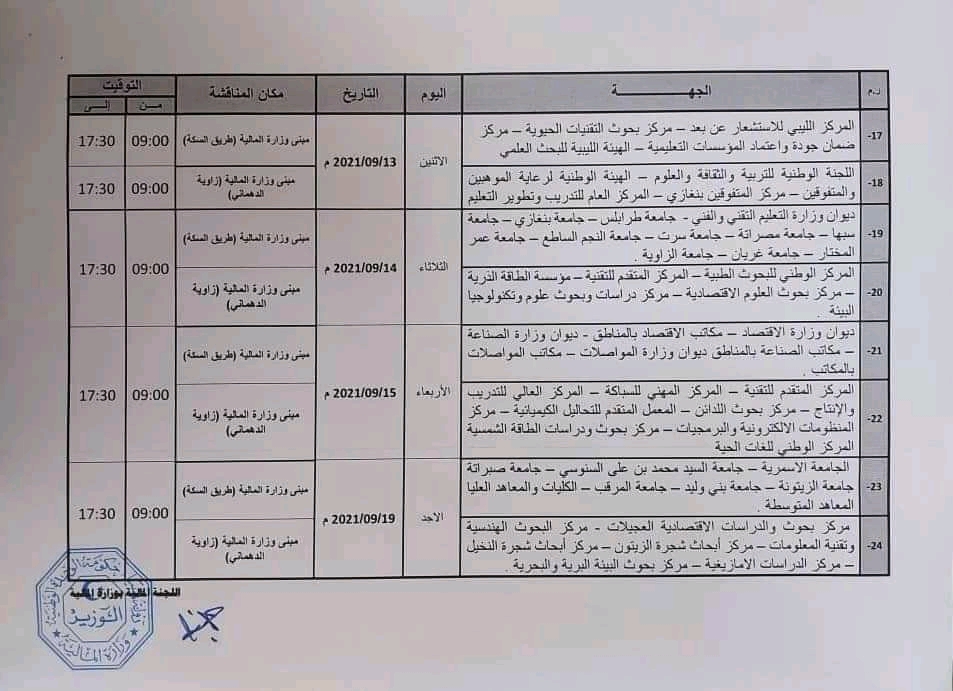 ر.م الجهـــــــــــــة اليوم التاريخ مكان المناقشة التوقيت
مــن إلــى
17- المركز الليبي للاستشعار عن بعد – مركز بحوث التقنيات الحيوية – مركز
ضمان جودة واعتماد المؤسسات التعليمية – الهيئة الليبية للبحث العلمي
الاثنين 2021/09/13 م مبنى وزارة المالية (طريق السكة) 09:00 17:30
18- اللجنة الوطنية للتربية والثقافة والعلوم – الهيئة الوطنية لرعاية الموهبين
والمتفوقين – مركز المتفوقين بنغازي – المركز العام للتدريب وتطوير التعليم
مبنى وزارة المالية (زاوية
الدهماني) 09:00 17:30
19- ديوان وزارة التعليم التقني والفني - جامعة طرابلس – جامعة بنغازي – جامعة
سبها – جامعة مصراتة – جامعة سرت – جامعة النجم الساطع – جامعة عمر
المختار – جامعة غريان – جامعة الزاوية .
الثلاثاء 2021/09/14 م مبنى وزارة المالية (طريق السكة) 09:00 17:30
20- المركز الوطني للبحوث الطبية – المركز المتقدم للتقنية – مؤسسة الطاقة الذرية
– مركز بحوث العلوم الاقتصادية – مركز دراسات وبحوث علوم وتكنولوجيا
البيئة .
مبنى وزارة المالية (زاوية
الدهماني)
21- ديوان وزارة الاقتصاد – مكاتب الاقتصاد بالمناطق - ديوان وزارة الصناعة
– مكاتب الصناعة بالمناطق ديوان وزارة المواصلات – مكاتب المواصلات
بالمكاتب .
الأربعاء 2021/09/15 م مبنى وزارة المالية (طريق السكة) 09:00 17:30
22- المركز المتقدم للتقنية – المركز المهني للسباكة – المركز العالي للتدريب
والإنتاج – مركز بحوث اللدائن – المعمل المتقدم للتحاليل الكيميائية – مركز
المنظومات الالكترونية والبرمجيات – مركز بحوث ودراسات الطاقة الشمسية
المركز الوطني للغات الحية
مبنى وزارة المالية (زاوية
الدهماني)
23- الجامعة الاسمرية – جامعة السيد محمد بن على السنوسي – جامعة صبراتة
جامعة الزيتونة – جامعة بني وليد – جامعة المرقب – الكليات والمعاهد العليا
المعاهد المتوسطة .
الاحد 2021/09/19 م مبنى وزارة المالية (طريق السكة) 09:00 17:30
24- مركز بحوث والدراسات الاقتصادية العجيلات - مركز البحوث الهندسية
وتقنية المعلومات – مركز أبحاث شجرة الزيتون – مركز أبحاث شجرة النخيل
– مركز الدراسات الامازيغية – مركز بحوث البيئة البرية والبحرية .
مبنى وزارة المالية (زاوية
الدهماني)
اللجنة المالية بوزارة المالية
حكومة الوحدة الوطنية
الوزير
وزارة المالية